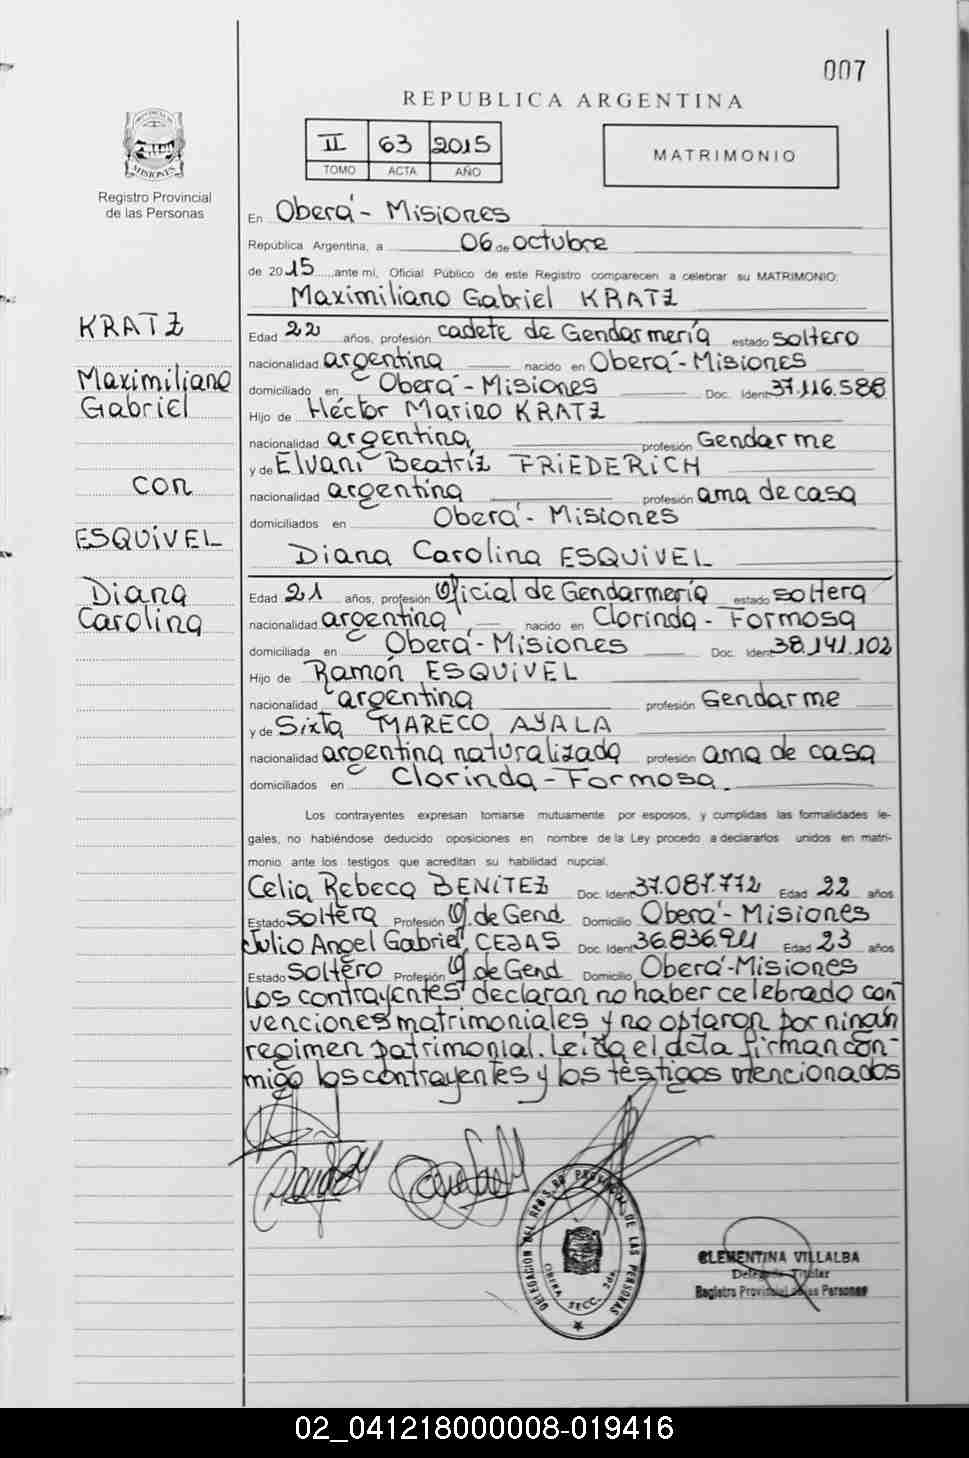 007
REPUBLICA ARGENTINA
II 63 2015
TOMO ACTA AÑO
MATRIMONIO
Registro Provincial
de las Personas
En Oberá - Misiones
República Argentina, a 06 de octubre
de 2015, ante mi, Oficial Público de este Registro comparecen a celebrar su MATRIMONIO:
Maximiliano Gabriel KRATZ
KRATZ
Maximiliano
Gabriel
con
ESQUIVEL
Diana
Carolina
Edad 22 años, profesión cadete de Gendarmería estado soltero
nacionalidad argentina nacido en Oberá - Misiones
domiciliado en Oberá - Misiones Doc. Ident. 37.116.588
Hijo de Héctor Marino KRATZ
nacionalidad argentina, profesión Gendarme
y de Elvani Beatríz FRIEDERICH
nacionalidad argentina profesión ama de casa
domiciliados en Oberá - Misiones
Diana Carolina ESQUIVEL
Edad 21 años, profesión Oficial de Gendarmería estado soltera
nacionalidad argentina nacido en Clorinda - Formosa
domiciliada en Oberá - Misiones Doc. Ident. 38.141.102
Hijo de Ramón ESQUIVEL
nacionalidad argentina profesión Gendarme
y de Sixta MARECO AYALA
nacionalidad argentina naturalizada profesión ama de casa
domiciliados en Clorinda - Formosa.
Los contrayentes expresan tomarse mutuamente por esposos, y cumplidas las formalidades le-
gales, no habiéndose deducido oposiciones en nombre de la Ley procedo a declararlos unidos en matri-
monio ante los testigos que acreditan su habilidad nupcial.
Celia Rebeca BENITEZ Doc. Ident. 37.087.772 Edad 22 años
Estado soltera Profesión Of. de Gend Domicilio Oberá - Misiones
Julio Angel Gabriel CEJAS Doc. Ident. 36.836.911 Edad 23 años
Estado soltero Profesión Of de Gend Domicilio Oberá - Misiones
Los contrayentes declaran no haber celebrado con-
venciones matrimoniales y no optaron por ningún
regimen patrimonial. Leída el acta firman con-
migo los contrayentes y los testigos mencionados
DELEGACION DEL REG. PROVINCIAL DE LAS PERSONAS
OBERA SECC. 2da.
CLEMENTINA VILLALBA
Delegada Titular
Registro Provincial de las Personas
02_041218000008-019416